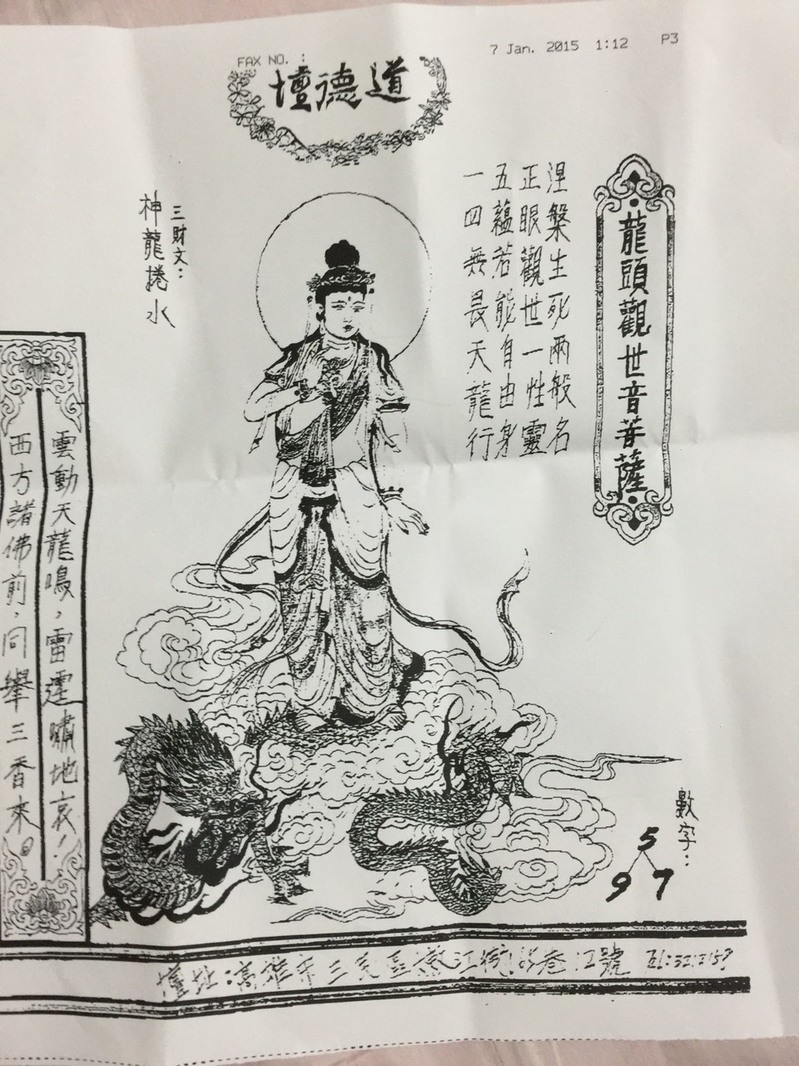 FAX NO. :
7 Jan. 2015 1:12 P3
道德壇
龍頭觀世音菩薩
涅槃生死兩般名
正眼觀世一性靈
五蘊若能自由身
一四無畏天龍行
三財文：
神龍捲水
雲動天龍鳴，雷霆嘯地哀！
西方諸佛前，同舉三香來。
數字：
5
9 7
壇址：高雄市三民區江街巷號